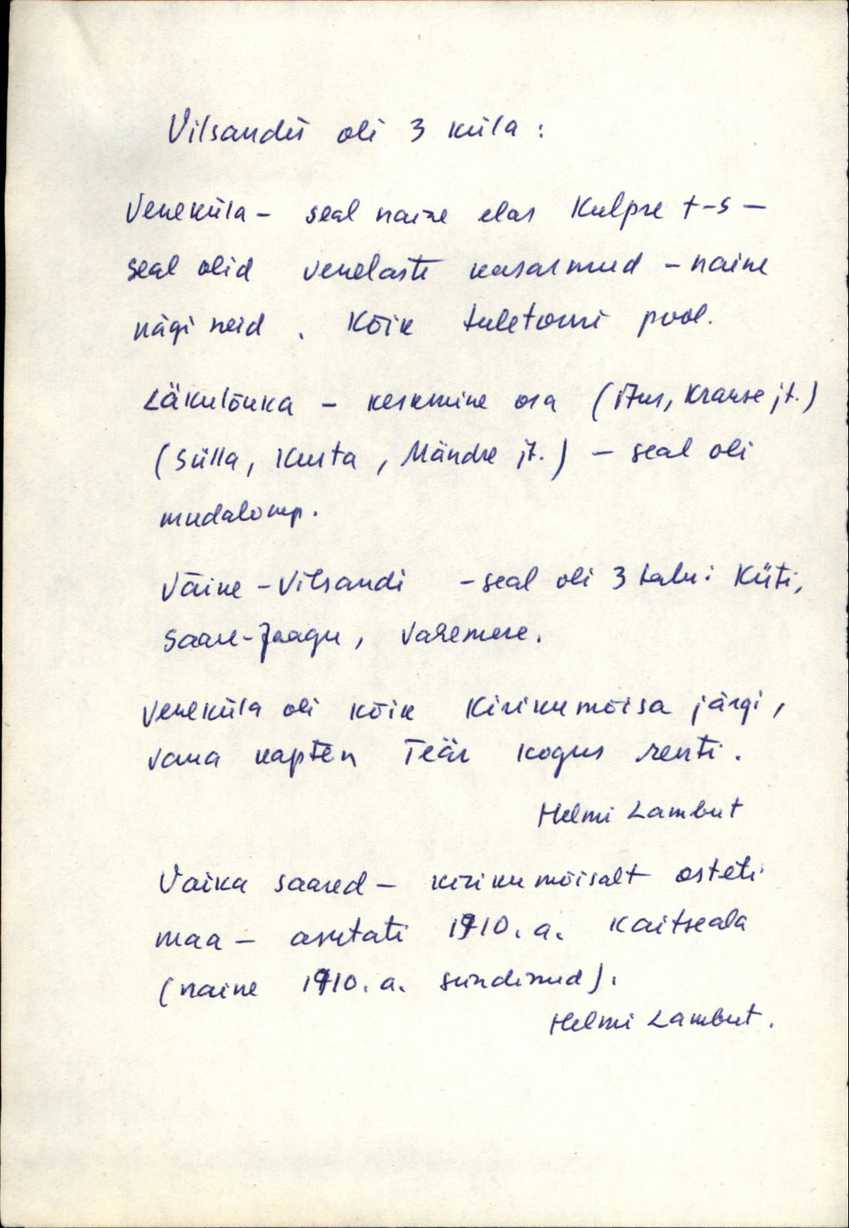 Vilsandis oli 3 küla :
Veneküla - seal naine elas Kulpre t-s -
seal olid venelaste kasarmud - naine
nägi neid . Kõik tuletorni pool.
Läkulõuka - keskmine osa (Itus, Krause jt.)
(Sülla, Kusta, Mändre jt.) - seal oli
mudalomp.
Väine-Vilsandi - seal oli 3 talu: Küti,
Saare-Jaagu, Vahemere.
Veneküla oli kõik Kirikumõisa järgi,
vana kapten Teär kogus renti.
Helmi Lambut
Vaika saared - kirikumõisalt osteti
maa - asutati 1910. a. kaitseala
(naine 1910. a. sündinud).
Helmi Lambut.